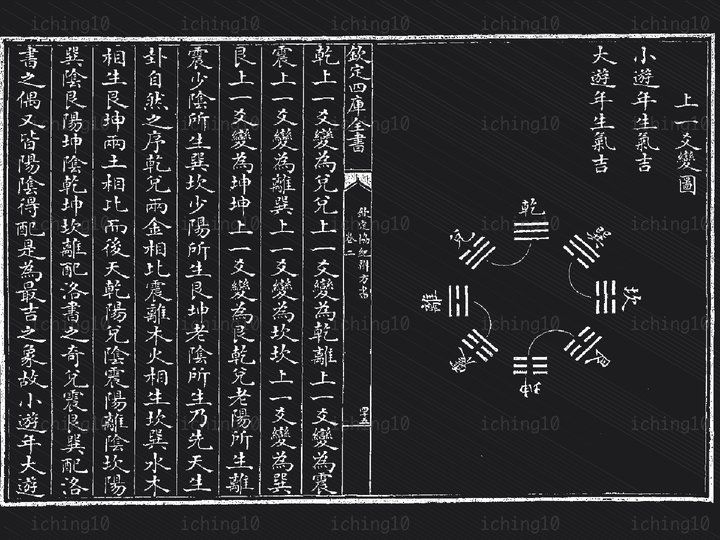 上一爻變圖
小遊年生氣吉
大遊年生氣吉
乾
兌
巽
離
坎
震
艮
坤
欽定四庫全書
欽定協紀辨方書
卷二
乾上一爻變為兌兌上一爻變為乾離上一爻變為震
震上一爻變為離巽上一爻變為坎坎上一爻變為巽
艮上一爻變為坤坤上一爻變為艮乾兌老陽所生離
震少陰所生巽坎少陽所生艮坤老陰所生乃先天生
卦自然之序乾兌兩金相比震離木火相生坎巽水木
相生艮坤兩土相比而後天乾陽兌陰震陽離陰坎陽
巽陰艮陽坤陰乾坤坎離配洛書之奇兌震艮巽配洛
書之偶又皆陽陰得配是為最吉之象故小遊年大遊
iching10